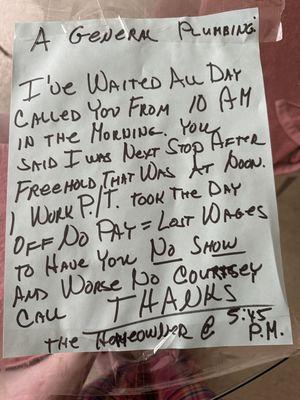 A General Plumbing
I've Waited All Day
Called You From 10 AM
in the Morning. You
Said I was Next Stop After
Freehold, That was At Noon.
I Work P/T. Took The Day
Off No Pay = Lost Wages
To Have You No Show
And Worse No Courtsey
Call THANKS
The Homeowner @ 5:45
P.M.